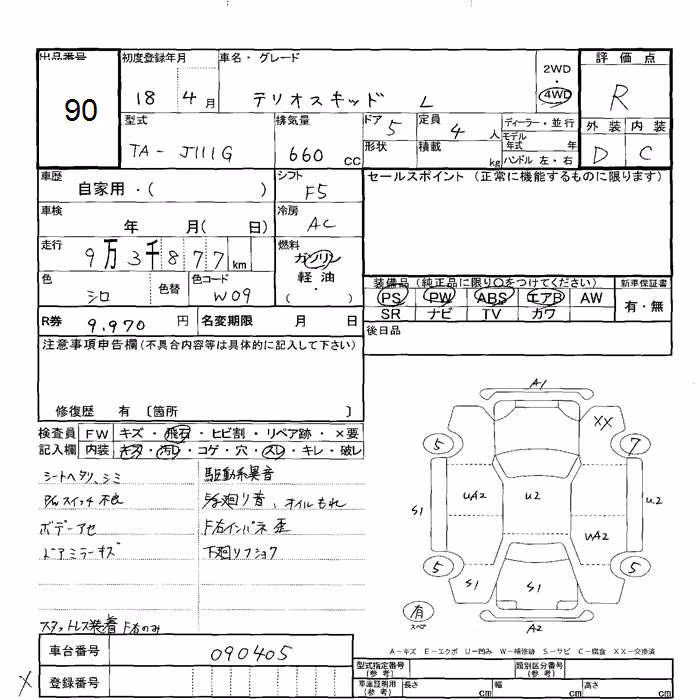 出品番号 初度登録年月 車名・グレード 2WD・4WD 評価点
90 18 4月 テリオスキッド L R
型式 排気量 ドア 定員 ディーラー・並行 外装 内装
TA-J111G 660cc 5 4人 モデル年式 年 D C
形状 積載 kg ハンドル 左・右
車歴 自家用・( ) シフト F5 セールスポイント (正常に機能するものに限ります)
車検 年 月( 日) 冷房 AC
走行 9万3千877km 燃料 ガソリン
軽・油
・( )
色 シロ 色替 色コード W09
装備品 (純正品に限り○をつけてください) 新車保証書
PS PW ABS エアB AW 有・無
SR ナビ TV カワ
R券 9.970円 名変期限 月 日 後日品
注意事項申告欄 (不具合内容等は具体的に記入して下さい)
修復歴 有 〔箇所 〕
検査員 FW キズ・飛石・ヒビ割・リペア跡・×要
記入欄 内装 キズ・汚レ・コゲ・穴・スレ・キレ・破レ
シートヘタリ、シミ 駆動系異音
P/Wスイッチ不良 廻り音、オイルもれ
ボデーアセ F右インパネ歪
ドアミラーキズ 下廻りフショク
スタットレス装着 F右のみ
車台番号 090405
登録番号
X
A1
XX
5 7
S1 UA2 U2 U2
UA2
5 5
S1 S1
有
スペア
A2
A-キズ E-エクボ U-凹み W-補修跡 S-サビ C-腐食 XX-交換済
型式指定番号 (参考) 類別区分番号 (参考)
車庫証明用 (参考) 長さ cm 幅 cm 高さ cm